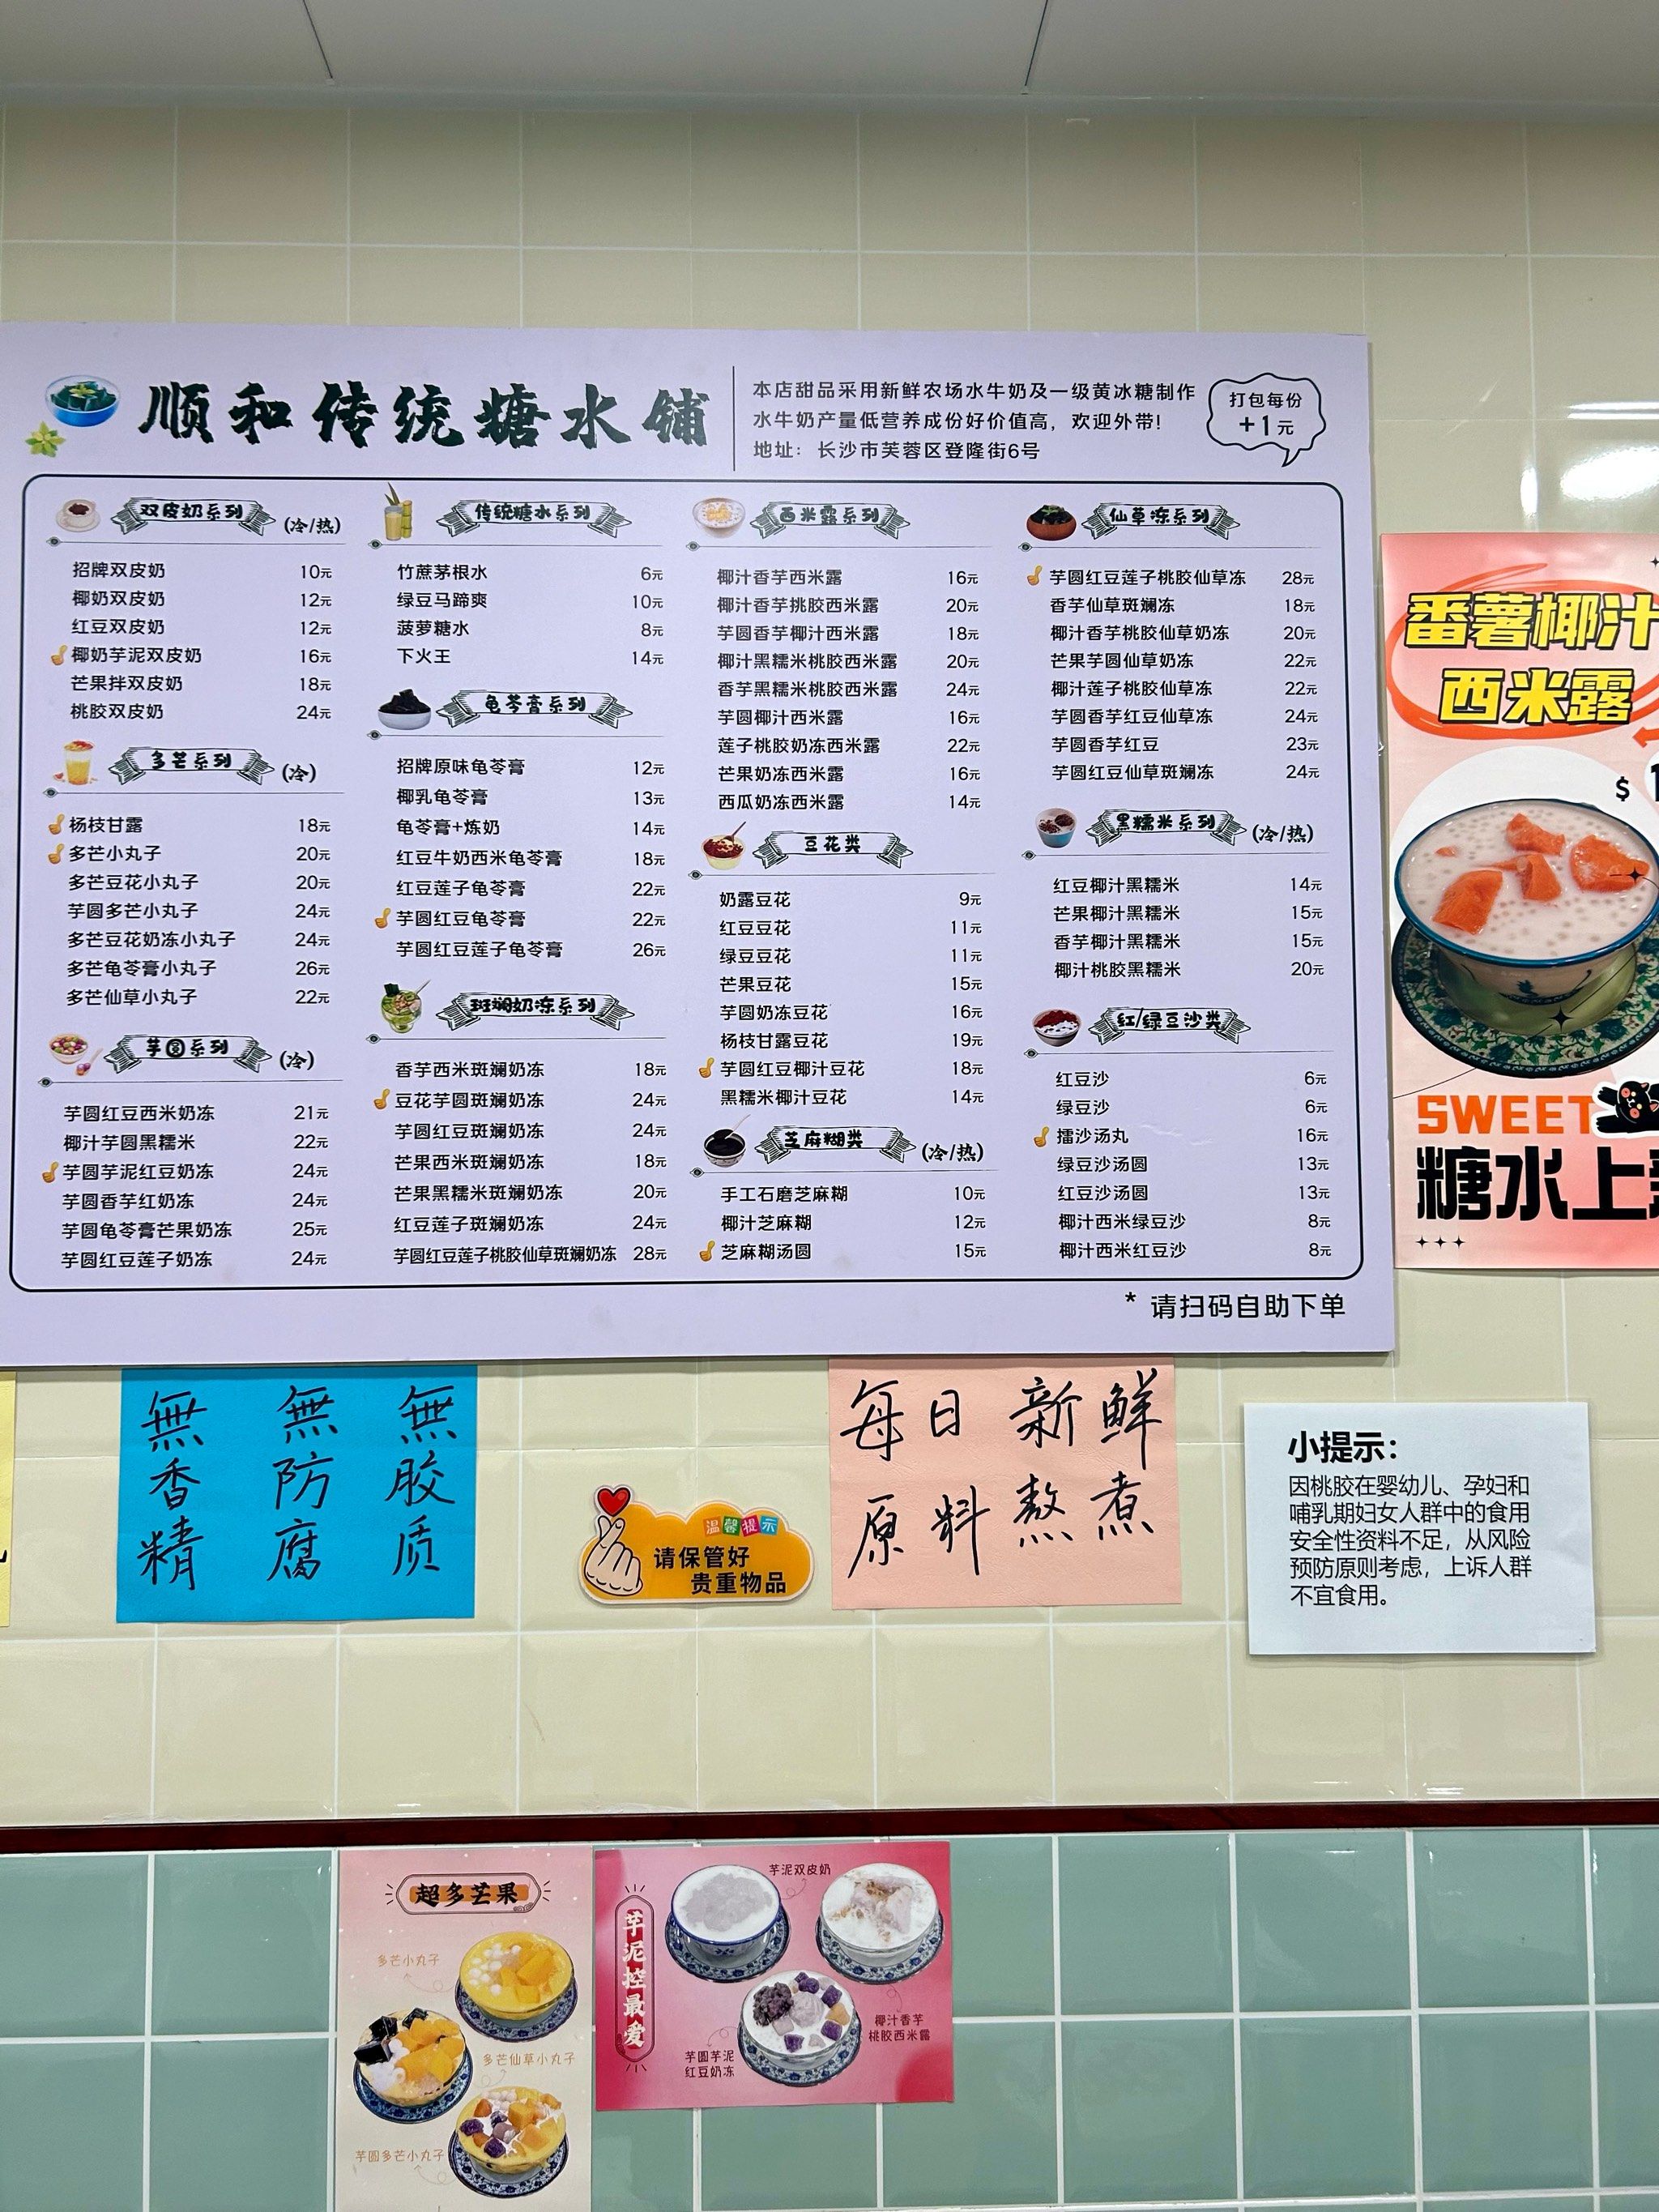 顺和传统糖水铺
本店甜品采用新鲜农场水牛奶及一级黄冰糖制作
水牛奶产量低营养成份好价值高，欢迎外带！
地址：长沙市芙蓉区登隆街6号
打包每份
+1元
双皮奶系列 (冷/热)
招牌双皮奶 10元
椰奶双皮奶 12元
红豆双皮奶 12元
椰奶芋泥双皮奶 16元
芒果拌双皮奶 18元
桃胶双皮奶 24元
多芒系列 (冷)
杨枝甘露 18元
多芒小丸子 20元
多芒豆花小丸子 20元
芋圆多芒小丸子 24元
多芒豆花奶冻小丸子 24元
多芒龟苓膏小丸子 26元
多芒仙草小丸子 22元
芋圆系列 (冷)
芋圆红豆西米奶冻 21元
椰汁芋圆黑糯米 22元
芋圆芋泥红豆奶冻 24元
芋圆香芋红奶冻 24元
芋圆龟苓膏芒果奶冻 25元
芋圆红豆莲子奶冻 24元
传统糖水系列
竹蔗茅根水 6元
绿豆马蹄爽 10元
菠萝糖水 8元
下火王 14元
龟苓膏系列
招牌原味龟苓膏 12元
椰乳龟苓膏 13元
龟苓膏+炼奶 14元
红豆牛奶西米龟苓膏 18元
红豆莲子龟苓膏 22元
芋圆红豆龟苓膏 22元
芋圆红豆莲子龟苓膏 26元
斑斓奶冻系列
香芋西米斑斓奶冻 18元
豆花芋圆斑斓奶冻 24元
芋圆红豆斑斓奶冻 24元
芒果西米斑斓奶冻 18元
芒果黑糯米斑斓奶冻 20元
红豆莲子斑斓奶冻 24元
芋圆红豆莲子桃胶仙草斑斓奶冻 28元
西米露系列
椰汁香芋西米露 16元
椰汁香芋挑胶西米露 20元
芋圆香芋椰汁西米露 18元
椰汁黑糯米桃胶西米露 20元
香芋黑糯米桃胶西米露 24元
芋圆椰汁西米露 16元
莲子桃胶奶冻西米露 22元
芒果奶冻西米露 16元
西瓜奶冻西米露 14元
豆花类
奶露豆花 9元
红豆豆花 11元
绿豆豆花 11元
芒果豆花 15元
芋圆奶冻豆花 16元
杨枝甘露豆花 19元
芋圆红豆椰汁豆花 18元
黑糯米椰汁豆花 14元
芝麻糊类 (冷/热)
手工石磨芝麻糊 10元
椰汁芝麻糊 12元
芝麻糊汤圆 15元
仙草冻系列
芋圆红豆莲子桃胶仙草冻 28元
香芋仙草斑斓冻 18元
椰汁香芋桃胶仙草奶冻 20元
芒果芋圆仙草奶冻 22元
椰汁莲子桃胶仙草冻 22元
芋圆香芋红豆仙草冻 24元
芋圆香芋红豆 23元
芋圆红豆仙草斑斓冻 24元
黑糯米系列 (冷/热)
红豆椰汁黑糯米 14元
芒果椰汁黑糯米 15元
香芋椰汁黑糯米 15元
椰汁桃胶黑糯米 20元
红/绿豆沙类
红豆沙 6元
绿豆沙 6元
擂沙汤丸 16元
绿豆沙汤圆 13元
红豆沙汤圆 13元
椰汁西米绿豆沙 8元
椰汁西米红豆沙 8元
* 请扫码自助下单
番薯椰汁
西米露
$ 1
SWEET
糖水上
無香精
無防腐
無胶质
温馨提示
请保管好
贵重物品
每日新鲜
原料熬煮
小提示：
因桃胶在婴幼儿、孕妇和
哺乳期妇女人群中的食用
安全性资料不足，从风险
预防原则考虑，上诉人群
不宜食用。
超多芒果
多芒小丸子
多芒仙草小丸子
芋圆多芒小丸子
芋泥控最爱
芋泥双皮奶
椰汁香芋
桃胶西米露
芋圆芋泥
红豆奶冻